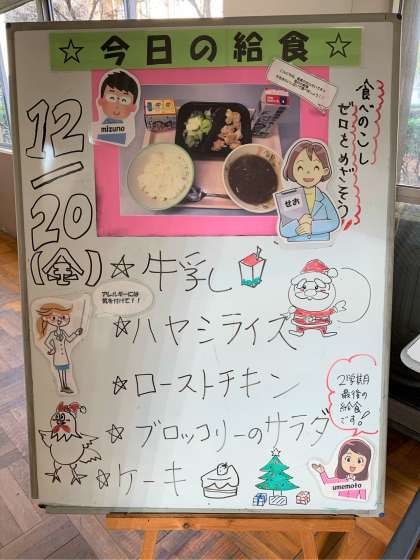 ☆今日の給食☆
mizuno
食べのこし
ゼロをめざそう!
せお
12/20
(金)
☆牛乳
アレルギーには
気を付けて!!
☆ハヤシライス
☆ローストチキン
2学期
最後の
給食
です!
☆ブロッコリーのサラダ
☆ケーキ
umemoto